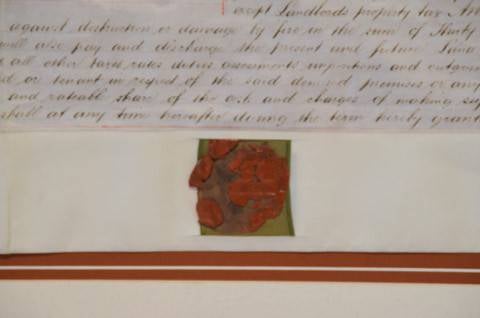 except Landlords property tax And
against destruction or damage by fire in the sum of Thirty
will also pay and discharge the present and future Land
all other taxes rates duties assessments impositions and outgoin
or tenant in respect of the said demised premises or any
and rateable share of the costs and charges of making
shall at any time hereafter during the term hereby grant